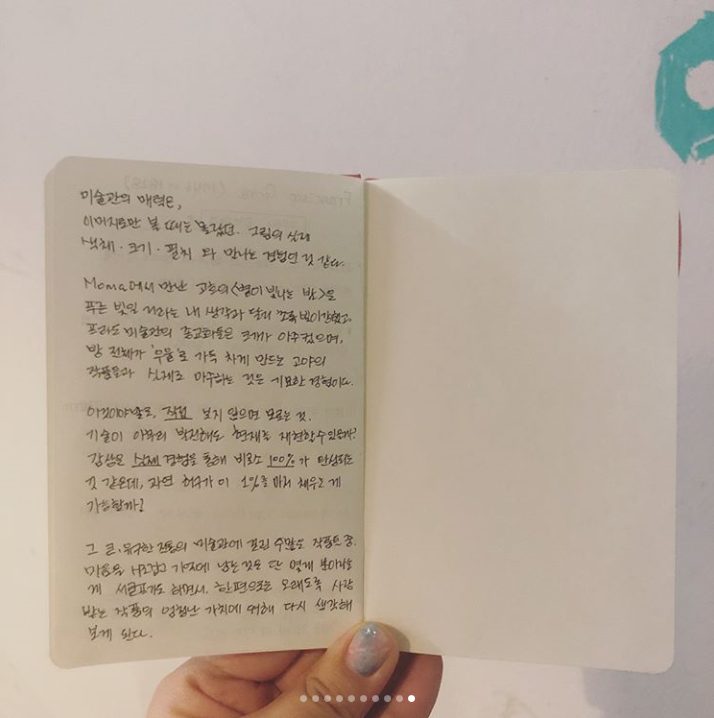 미술관의 매력은,
이미지로만 볼 때는 몰랐던 그림의 실제
색채·크기·필치 와 만나는 경험인 것 같다.
Moma에서 만난 고흐의 <별이 빛나는 밤>은
푸른 빛일 거라는 내 생각과 달리 초록빛이 강했고,
프라도 미술관의 종교화들은 크기가 아주 컸으며,
방 전체가 '우울'로 가득 차게 만드는 고야의
작품들과 실제로 마주하는 것은 기묘한 경험이다.
이것이야말로, 직접 보지 않으면 모르는 것.
기술이 아무리 발전해도 현재를 재현할 수 있을까?
감상은 실제 경험을 통해 비로소 100%가 완성되는
것 같은데, 자연 허구가 이 1%를 마저 채우는 게
가능할까?
그 큰, 유구한 전통의 미술관에 걸린 수많은 작품들 중.
마음을 사로잡고 기억에 남는 것은 단 몇 개 뿐이라는
게 서글프기도 하면서. 한편으로는 오래도록 사랑
받는 작품의 엄청난 가치에 대해 다시 생각해
보게 된다.
Francisco Goya